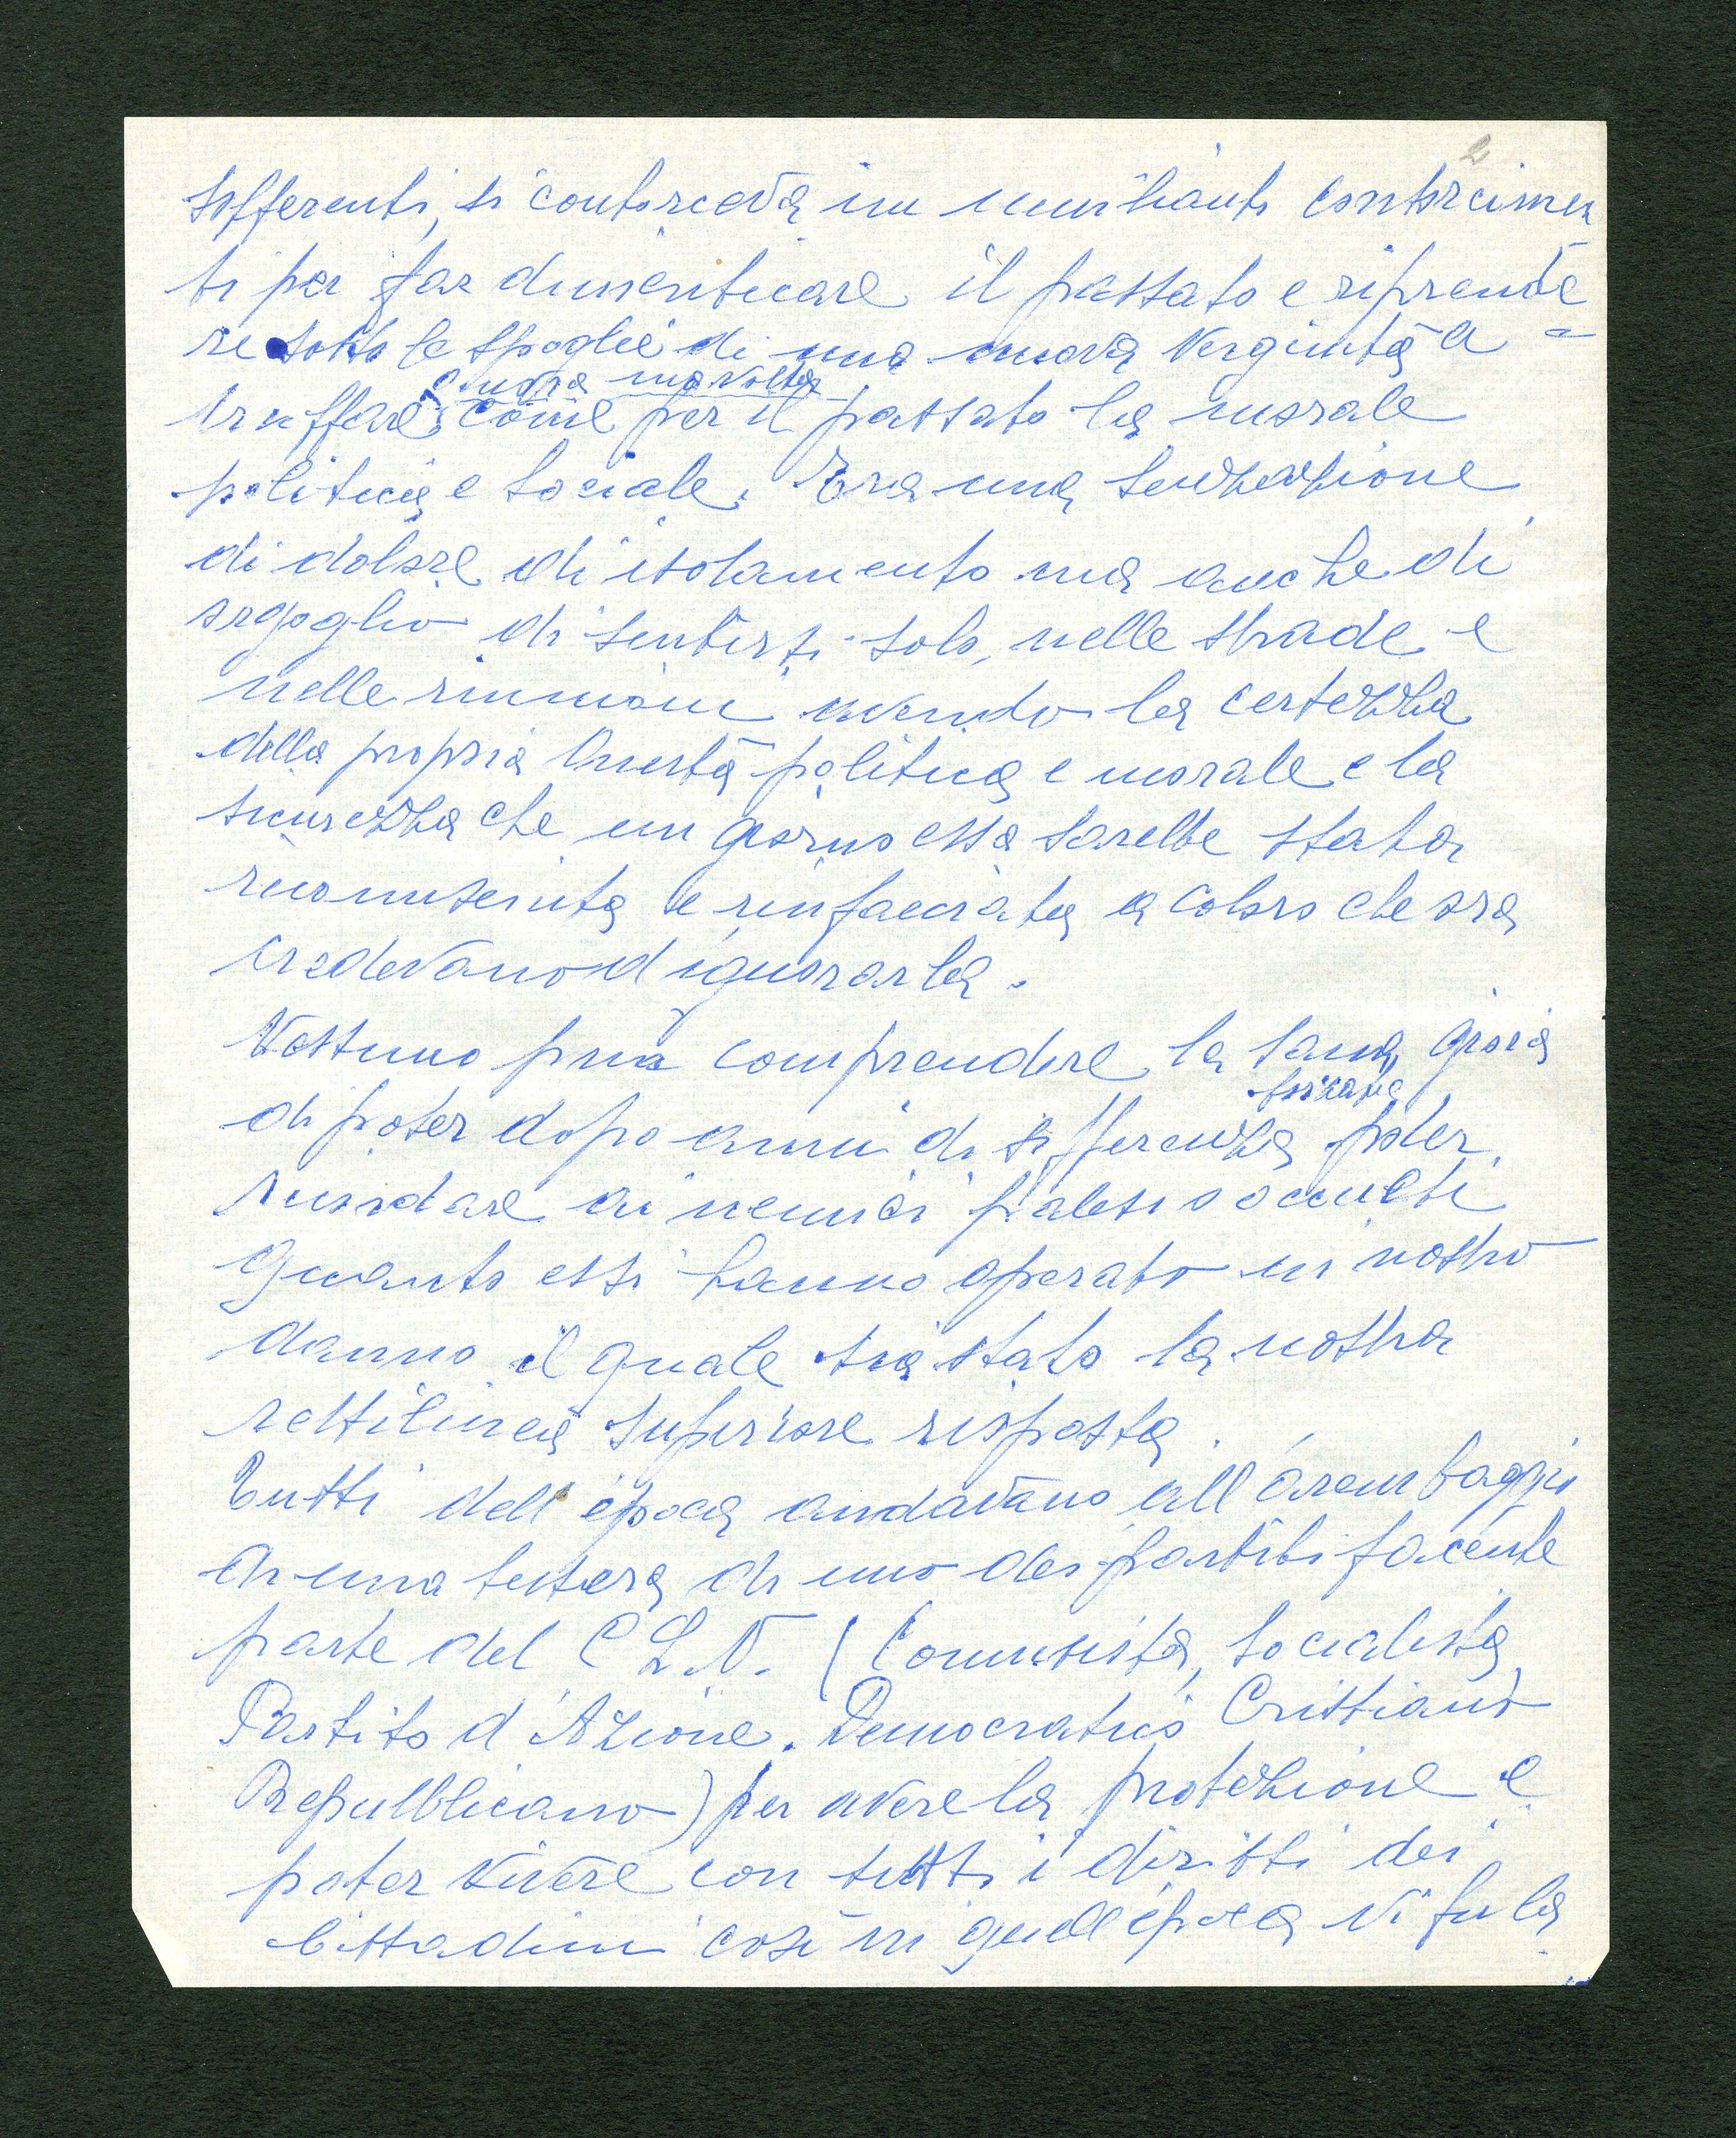 2
sofferenti, si contorceva in umilianti contorcimen
ti per far dimenticare il passato e riprende=
re sotto le spoglie di una nuova verginità a
ancora una volta
truffare come per il passato la morale
politica e sociale. Era una sensazione
di dolore di isolamento ma anche di
orgoglio di sentirsi solo, nelle strade e
nelle riunioni avendo la certezza
della propria onestà politica e morale e la
sicurezza che un giorno essa sarebbe stata
riconosciuta e rinfacciata a coloro che ora
credevano d ignorarla.
Nessuno può comprendere la sana gioia
di poter dopo anni di sofferenza poter
ricordare ai nemici palesi o occulti
quanto essi hanno operato in nostro
danno il quale sia stata la nostra
rettilinea superiore risposta.
Tutti dell'epoca andavano all'arembaggio
di una tessera di uno dei partiti facente
parte del C L N. (Comunista, Socialista
Partito d'Azione. Democratico Cristiano
Repubblicano) per avere la protezione e
poter vivere con tutti i diritti dei
cittadini così in quell'epoca vi fu la